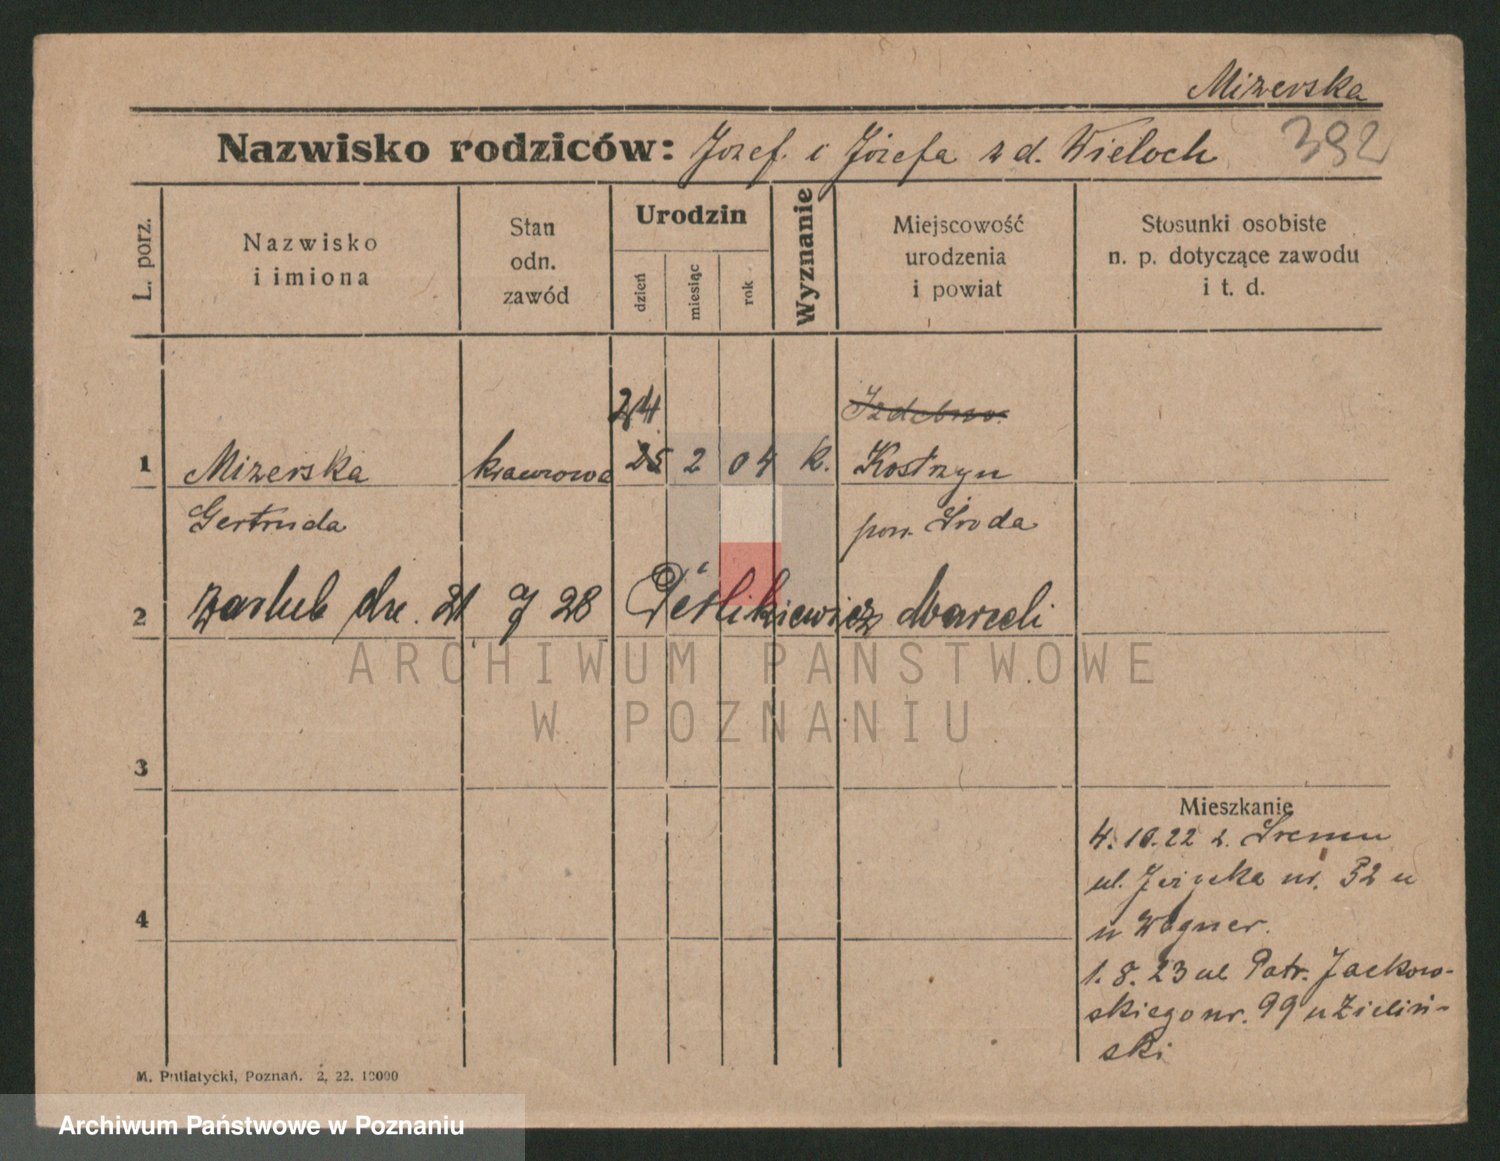 Mizerska
Nazwisko rodziców: Józef. i Józefa z d. Wieloch
392
L. porz.
Nazwisko
i imiona
Stan
odn.
zawód
Urodzin
dzień
miesiąc
rok
Wyznanie
Miejscowość
urodzenia
i powiat
Stosunki osobiste
n. p. dotyczące zawodu
i t. d.
24
Izdebno.
1 Mizerska krawcowa 25 2 04 k. Kostrzyn
Gertruda pow. Środa
2 zaślub dn. 21 7 28 Peślikiewicz Marceli
ARCHIWUM PAŃSTWOWE
W POZNANIU
3
Mieszkanie
4. 10. 22 z Śremu
ul. Jeżycka nr. 52
4
u Wagner.
1. 8. 23 ul Patr. Jackow-
skiego nr. 99 u Zieliń-
ski
M. Putiatycki, Poznań. 2, 22. 10000
Archiwum Państwowe w Poznaniu